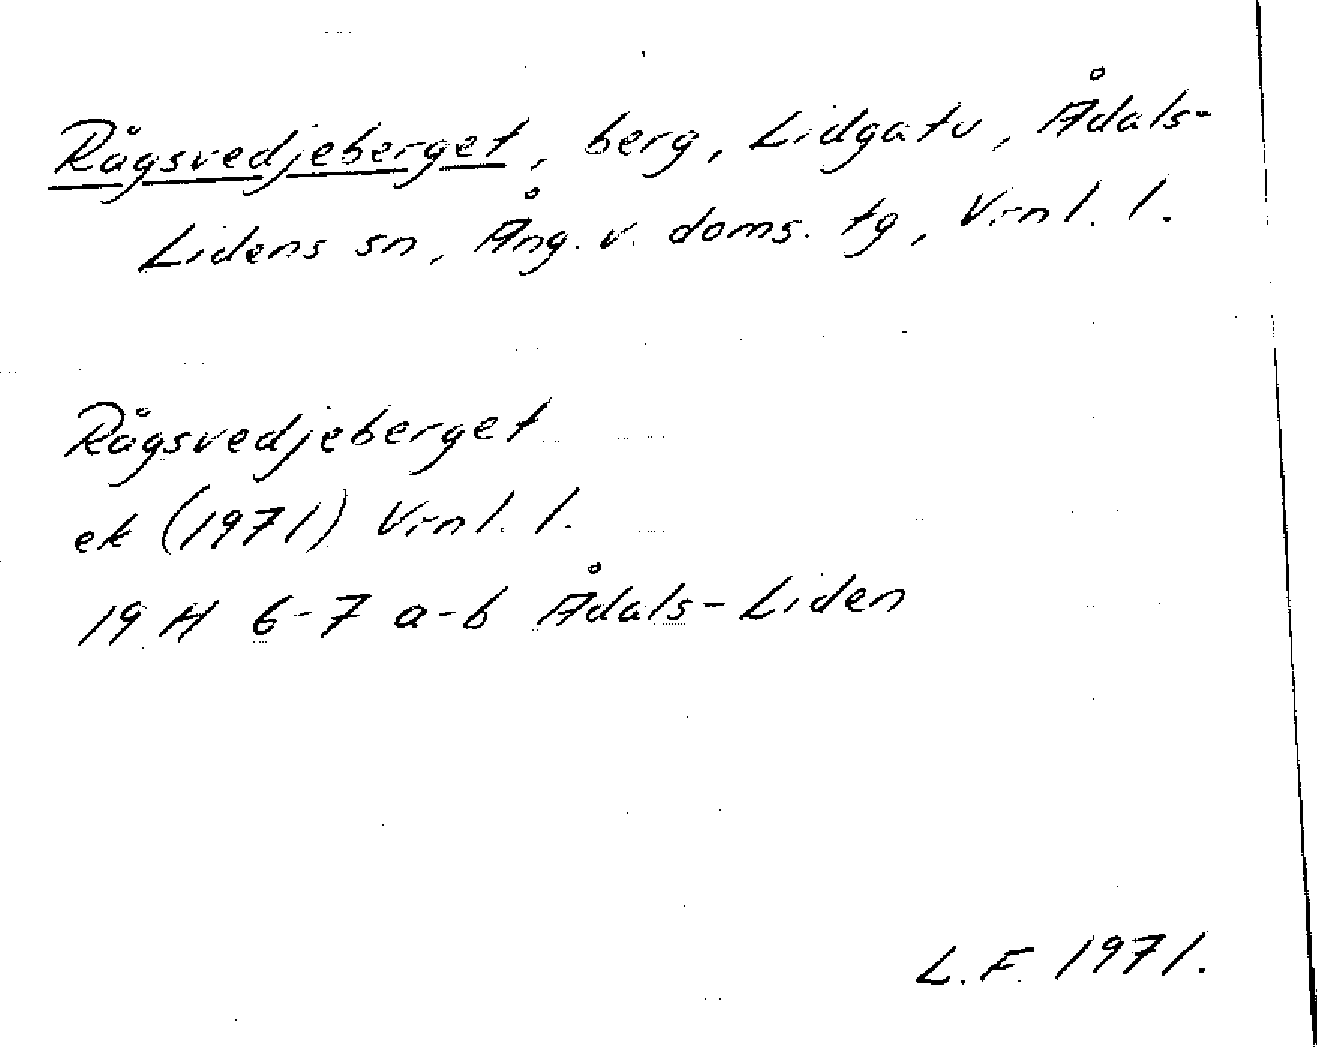 Rågsvedjeberget, berg, Lidgatu, Ådals-
Lidens sn, Ång. v. doms. tg, Vrnl. l.
Rågsvedjeberget
ek (1971) Vrnl. l.
19 H 6-7 a-b Ådals-Liden
L.F. 1971.